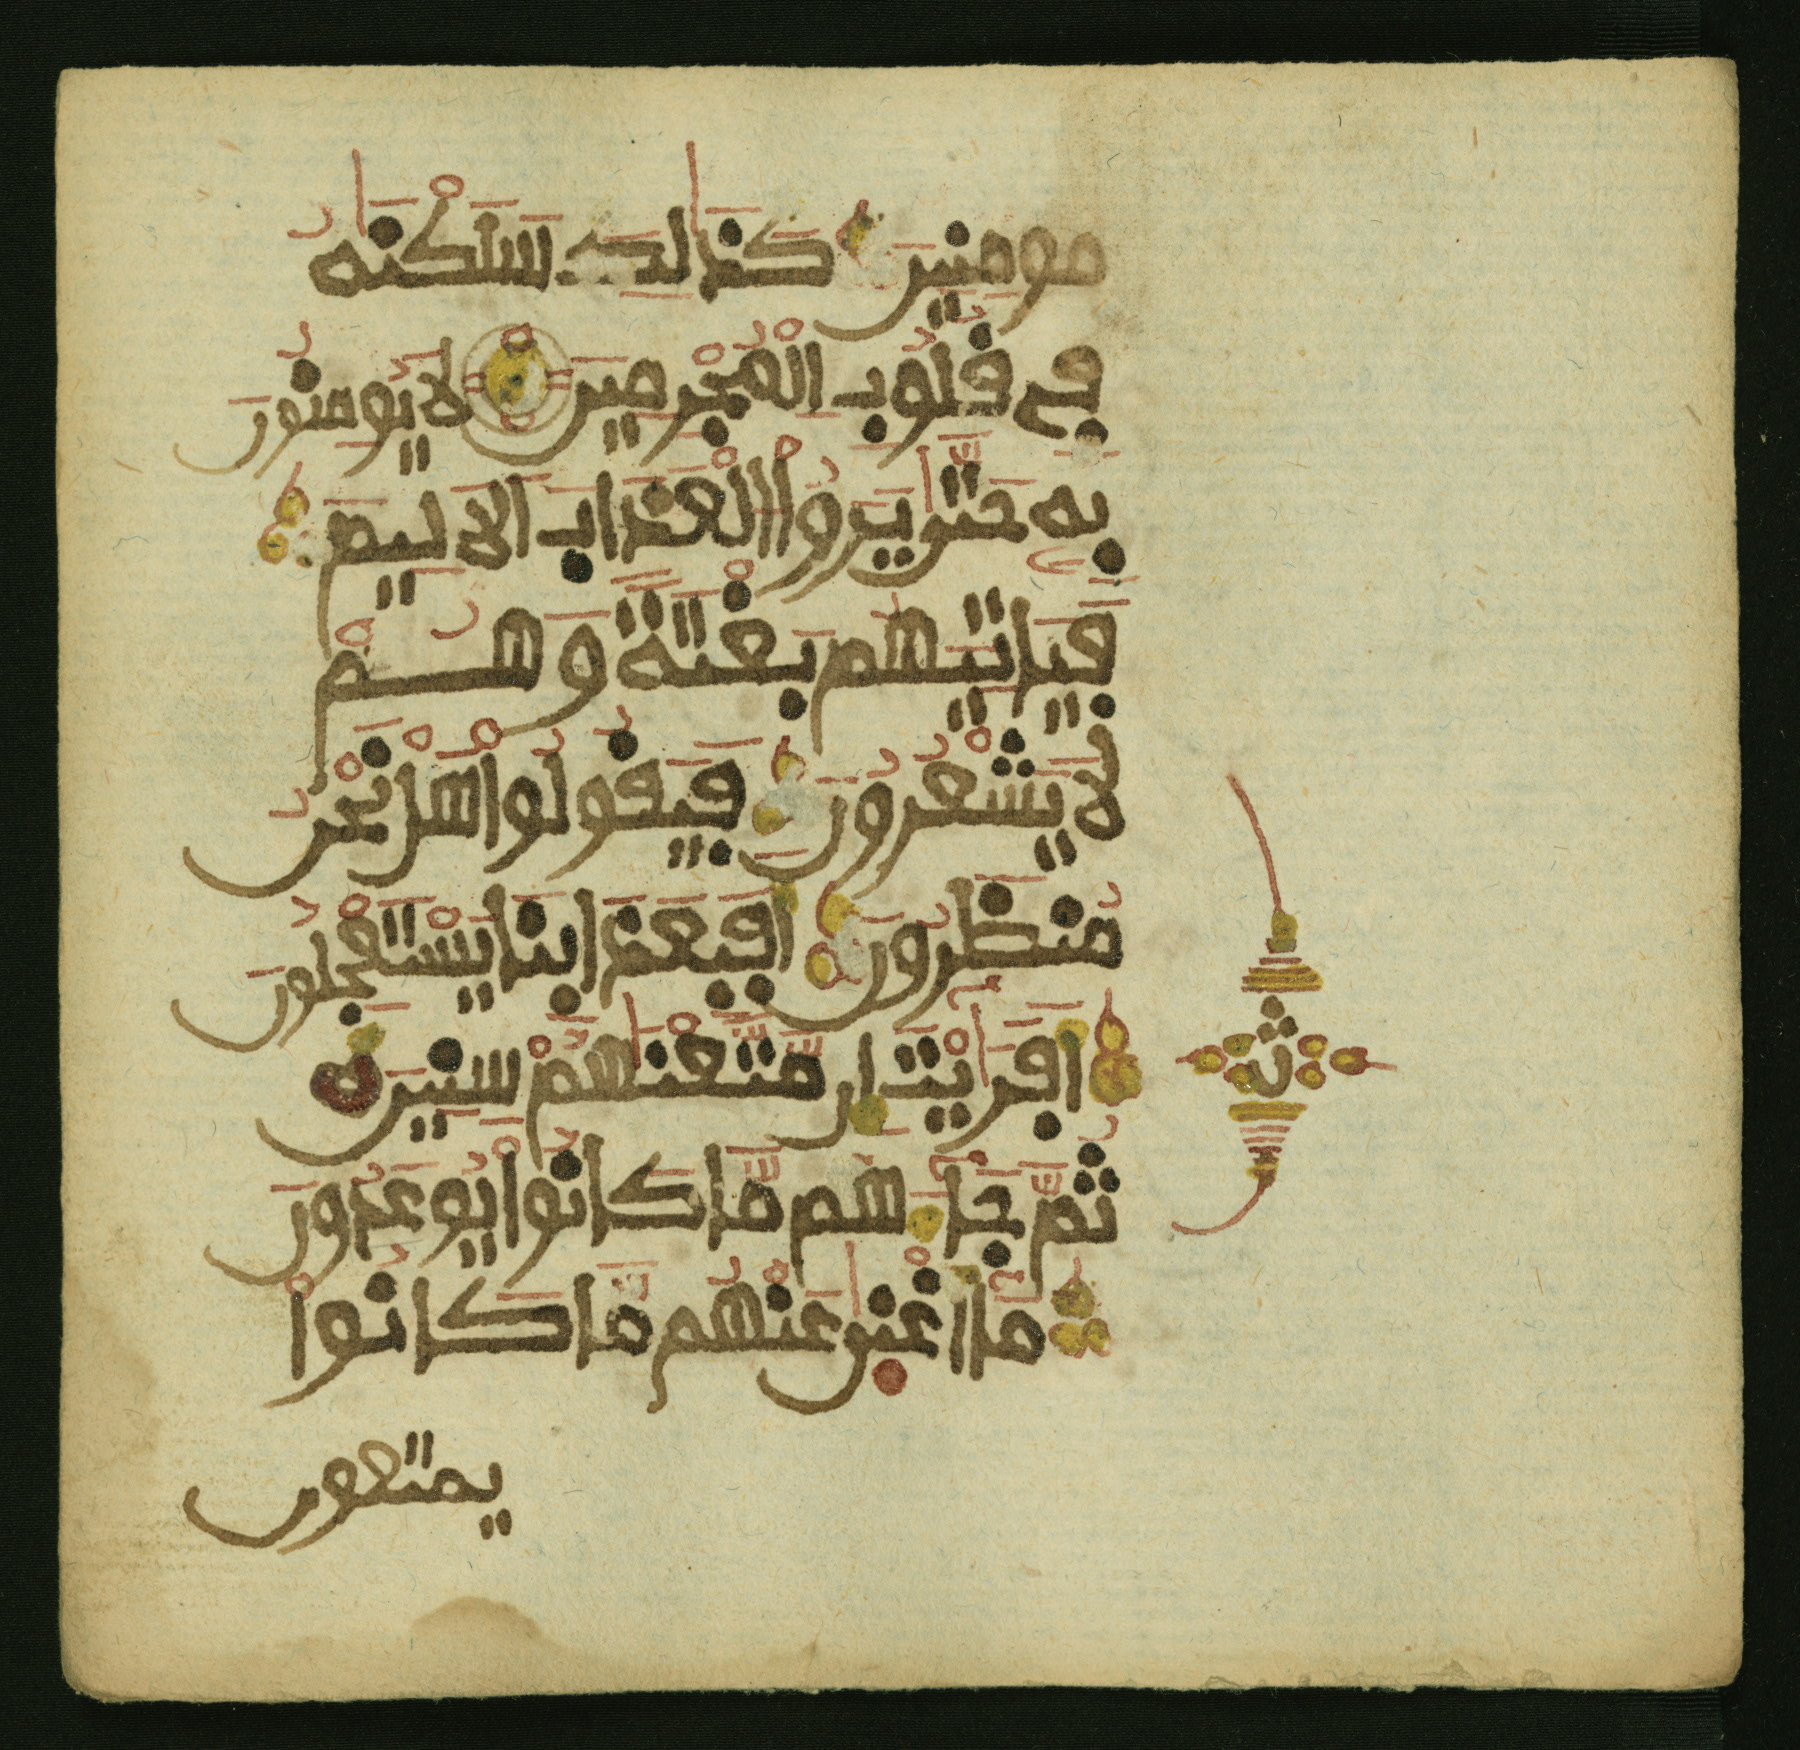 مومنين كذالك سلكنه
في قلوب المجرمين لا يومنون
به حتى يروا العذاب الاليم
فياتيهم بغتة وهم
لا يشعرون فيقولوا هل نحن
منظرون افبعذابنا يستعجلون
افرايت ان متعنهم سنين
ثم جاءهم ما كانوا يوعدون
ما اغنى عنهم ما كانوا
يمتعون
ث